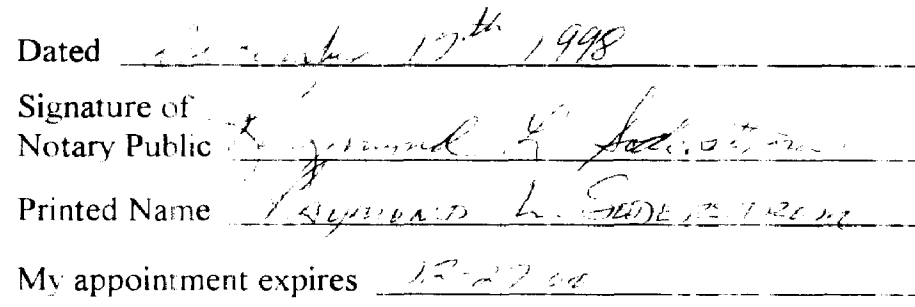 Dated December 17th 1998
Signature of
Notary Public Raymond L Soderstrom
Printed Name Raymond L. Soderstrom
My appointment expires